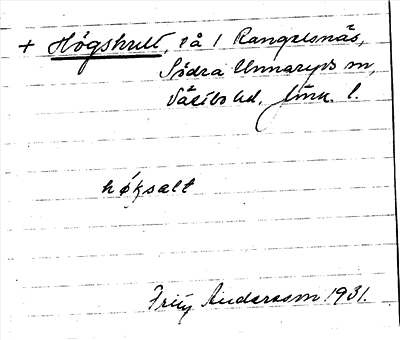 + Högshult, på 1 Rangelsnäs,
Södra Unnaryds sn,
Västbo hd, Jönk. l.
høksalt
Fritz Andersson 1931.